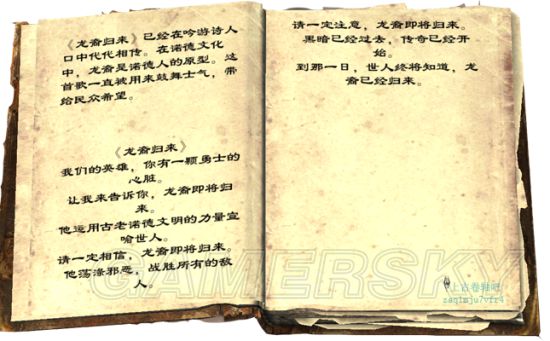 《龙裔归来》已经在吟游诗人
口中代代相传。在诺德文化
中，龙裔是诺德人的原型。这
首歌一直被用来鼓舞士气，带
给民众希望。
《龙裔归来》
我们的英雄，你有一颗勇士的
心脏。
让我来告诉你，龙裔即将归
来。
他运用古老诺德文明的力量宣
喻世人。
请一定相信，龙裔即将归来。
他荡涤邪恶，战胜所有的敌
人。
请一定注意，龙裔即将归来。
黑暗已经过去，传奇已经开
始。
到那一日，世人终将知道，龙
裔已经归来。
GAMERSKY
上古卷轴吧
zaq1mju7vfr4